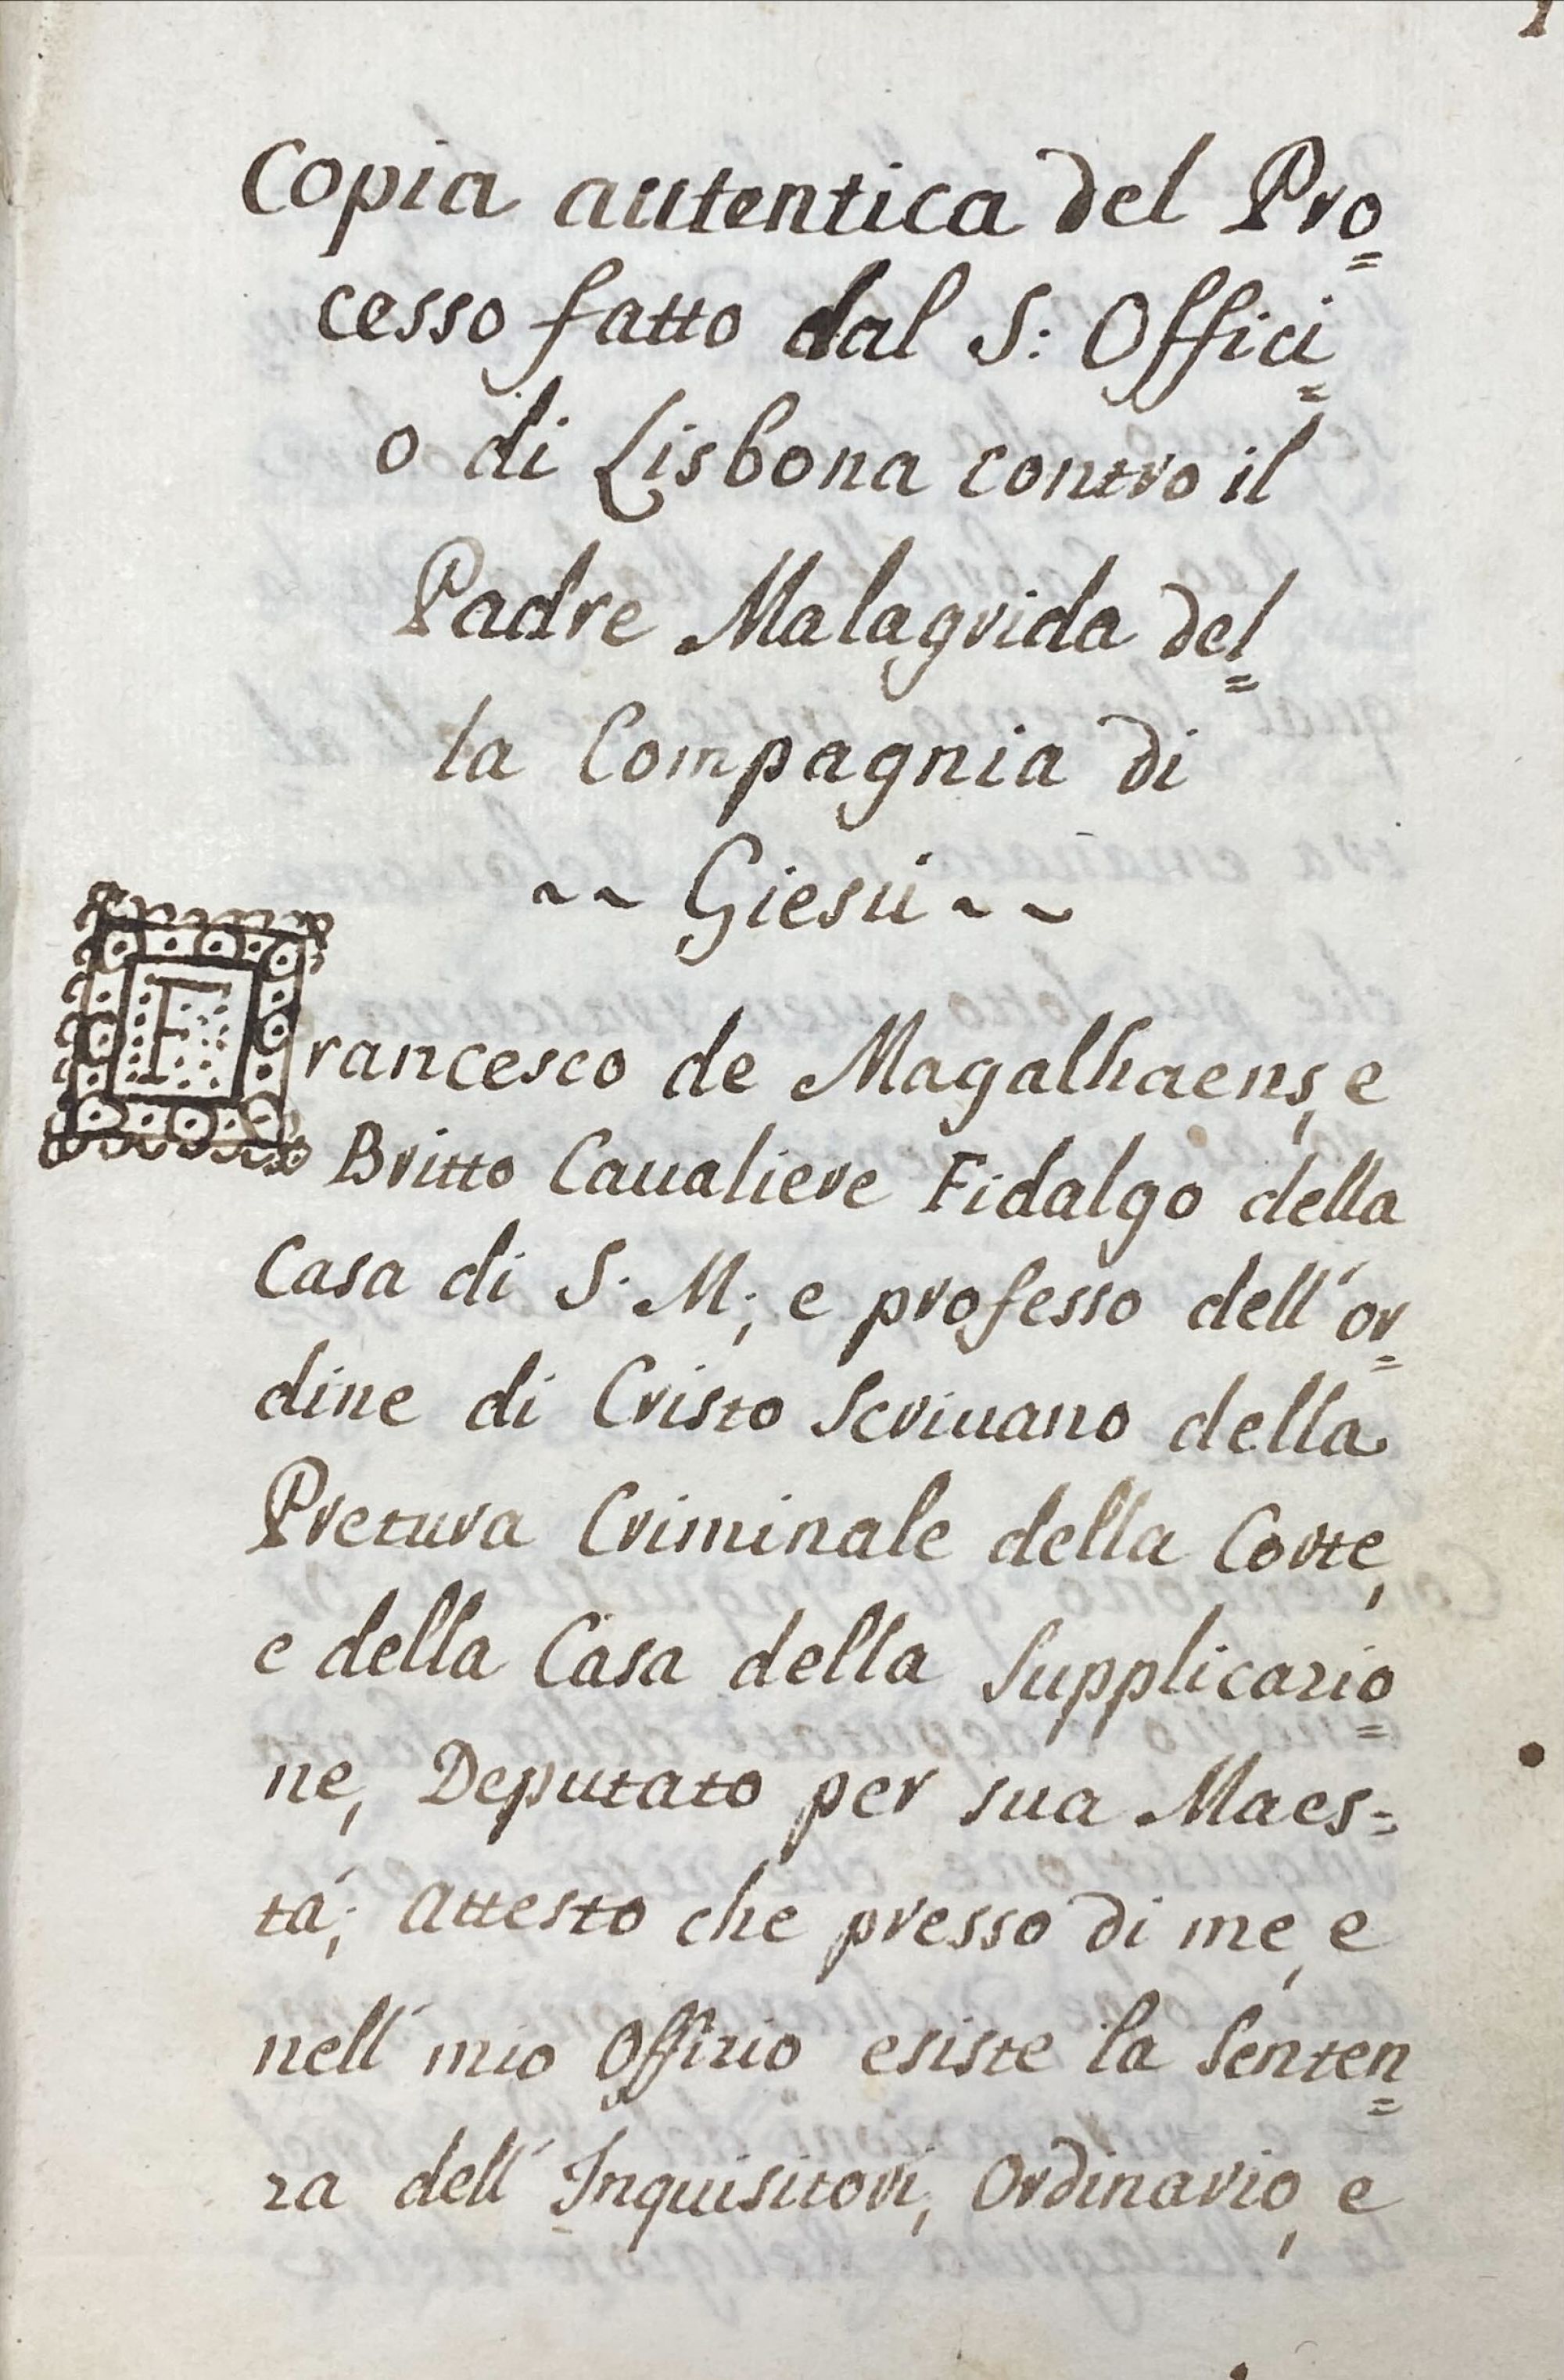 Copia autentica del Pro=
cesso fatto dal S: Offici=
o di Lisbona contro il
Padre Malagrida del=
la Compagnia di
~~ Giesù ~~
Francesco de Magalhaens, e
Britto Caualiere Fidalgo della
Casa di S. M; e professo dell'or=
dine di Cristo Scriuano della
Pretura Criminale della Corte,
e della Casa della Supplicazio=
ne, Deputato per sua Maes=
tá; Attesto che presso di me, e
nell' mio Offizio esiste la Senten=
za dell' Inquisitori, Ordinario, e